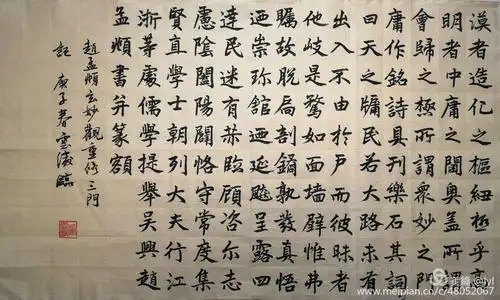 漠者造化之樞紐極乎高
明者中庸之閫奧蓋所謂
會歸之極所謂衆妙之門
庸作銘詩具刊樂石其詞
曰天之牖民若大路未有
出入不由於戶而彼昧者
他岐是騖如面墻壁惟弗
矚故脫扃剖鐍孰發真悟
迺崇珎館迺延飈呈露四
達民迷有赫臨顧咨尔志
慮陰闔陽闢恪守常度集
賢直學士朝列大夫行江
浙等處儒學提舉吳興趙
孟頫書并篆額
趙孟頫玄妙觀重修三門
記 庚子春雲 臨
美篇@lyl
www.meipian.cn/c/48052067